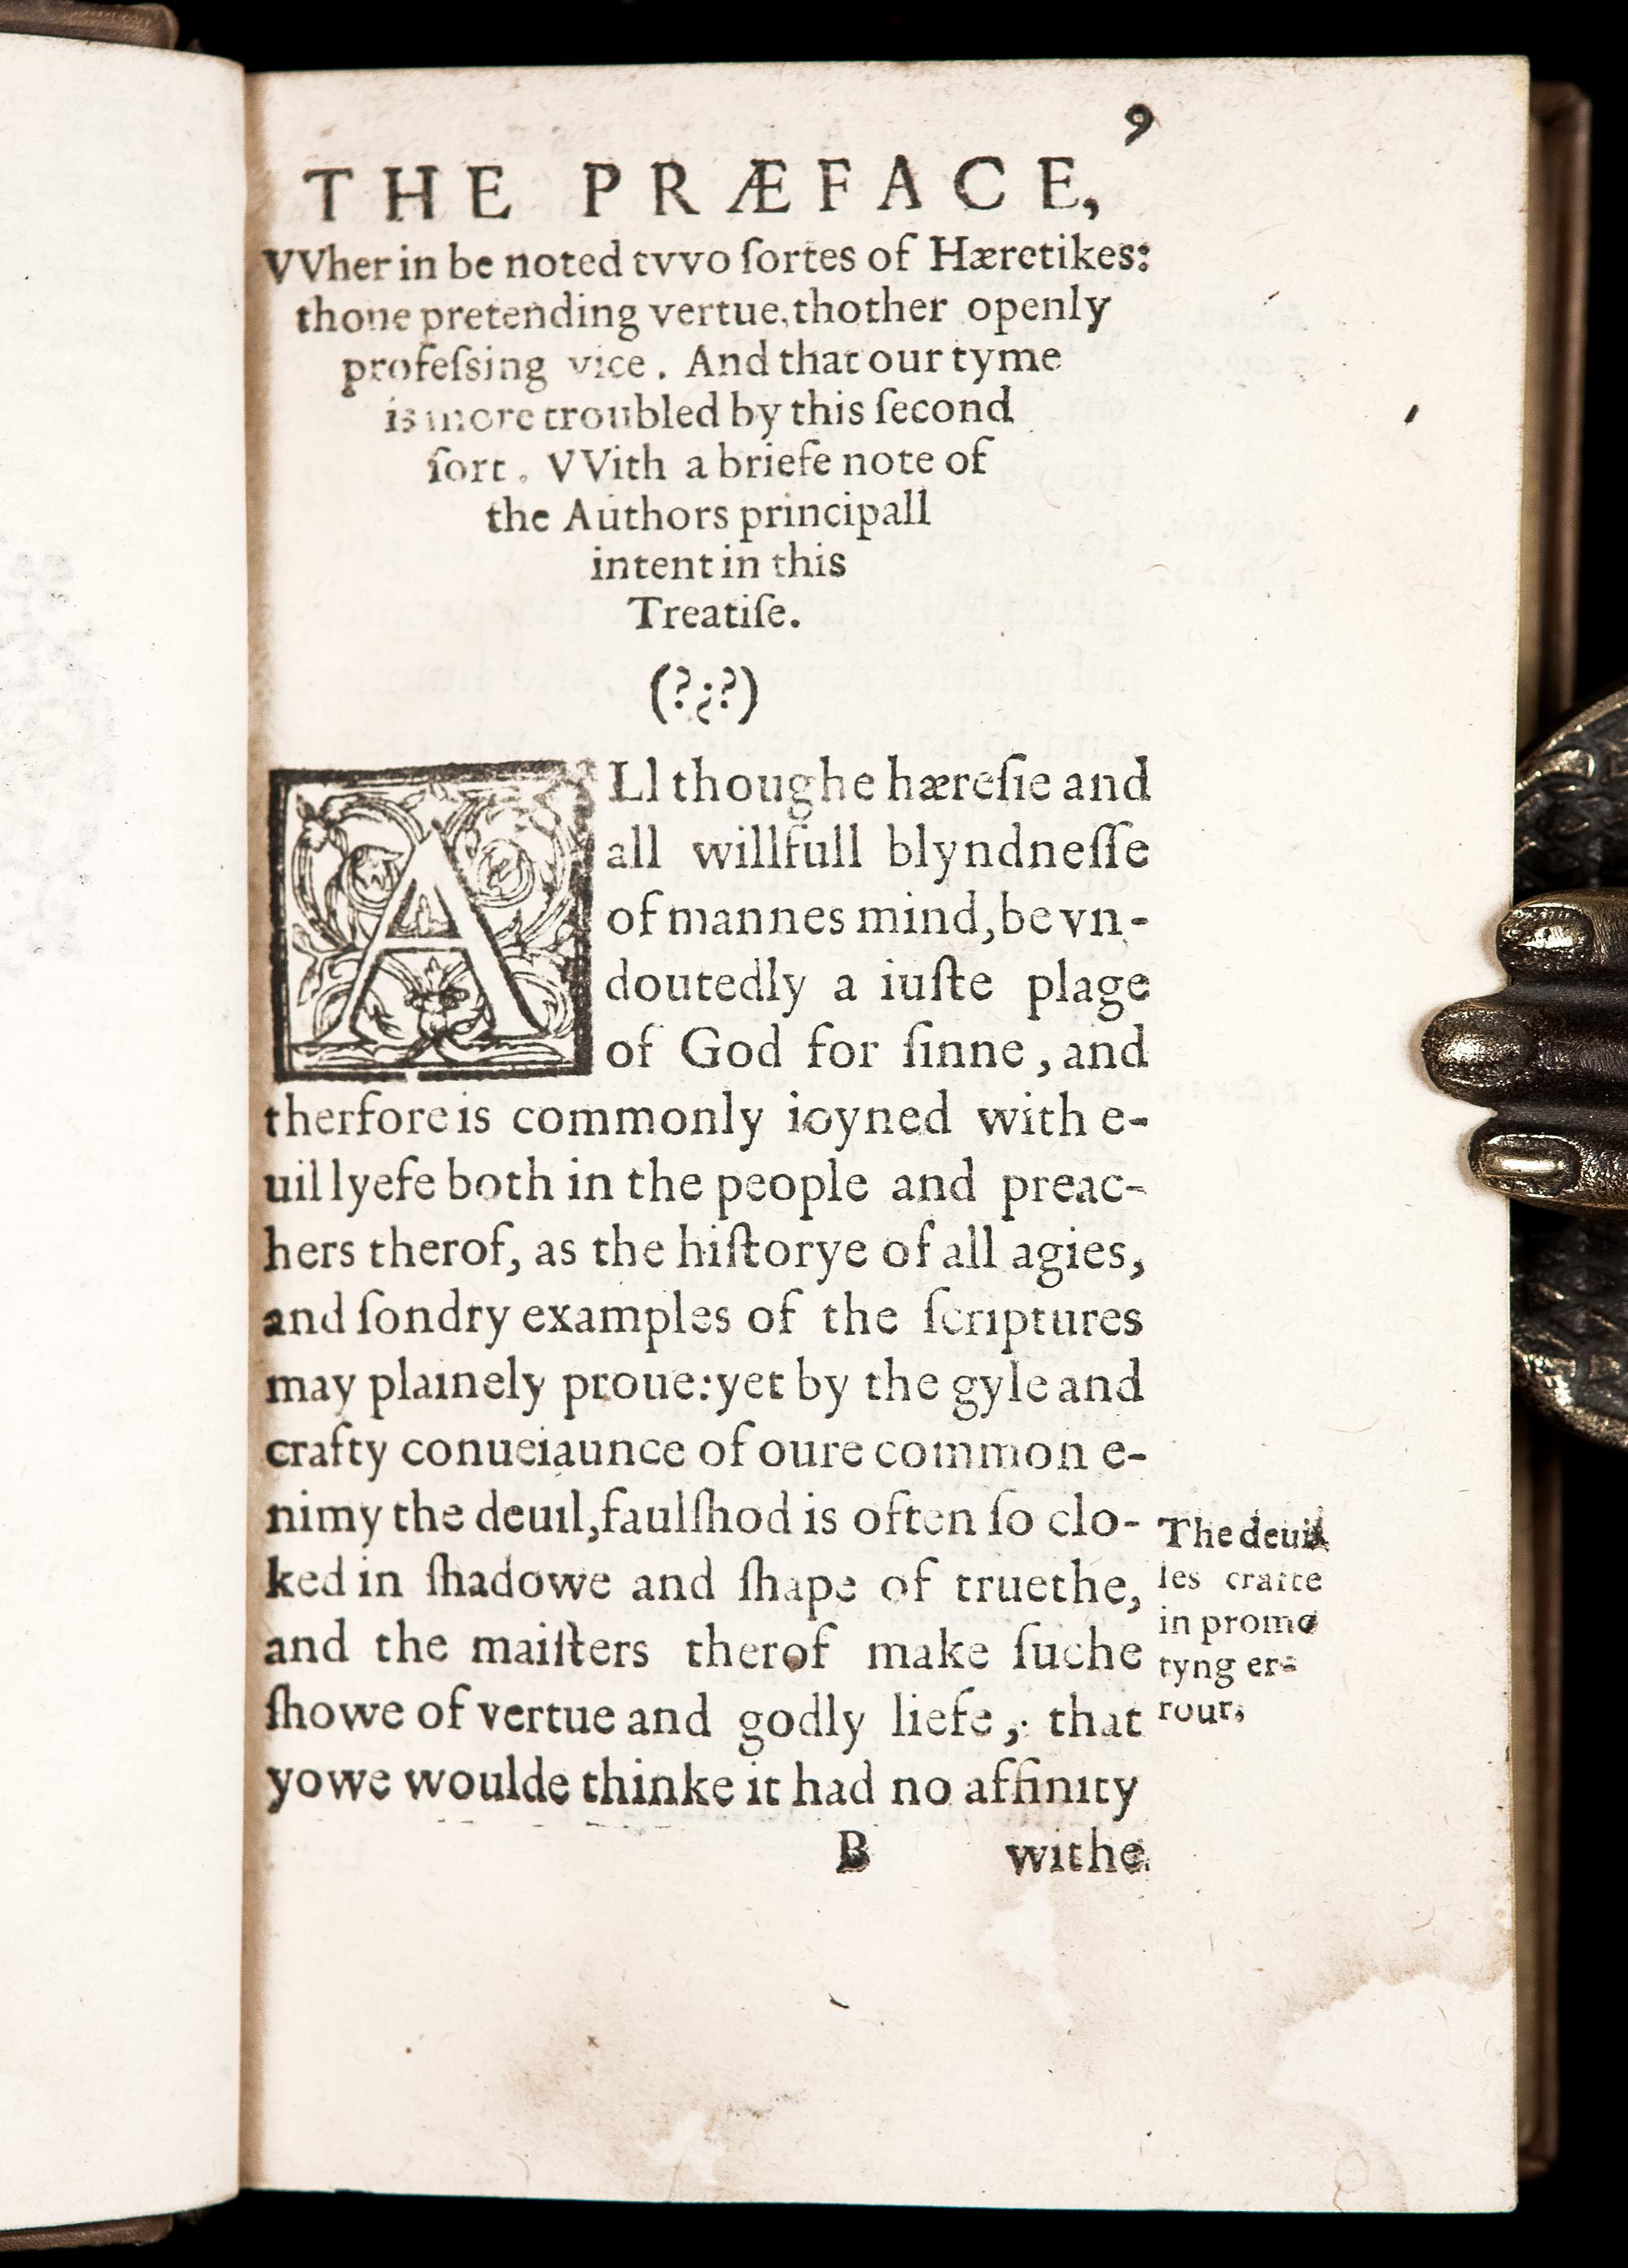 9
THE PRÆFACE,
VVher in be noted tvvo ſortes of Hæretikes:
thone pretending vertue, thother openly
profeſsing vice. And that our tyme
is more troubled by this ſecond
ſort. VVith a briefe note of
the Authors principall
intent in this
Treatiſe.
(?¿?)
ALl thoughe hæreſie and
all willfull blyndneſſe
of mannes mind, be vn-
doutedly a iuſte plage
of God for ſinne, and
therfore is commonly ioyned with e-
uil lyefe both in the people and preac-
hers therof, as the hiſtorye of all agies,
and ſondry examples of the ſcriptures
may plainely proue: yet by the gyle and
crafty conueiaunce of oure common e-
nimy the deuil, faulſhod is often ſo clo-
ked in ſhadowe and ſhape of truethe,
and the maiſters therof make ſuche
ſhowe of vertue and godly liefe, that
yowe woulde thinke it had no affinity
B withe
The deuil
les crafte
in promo
tyng er-
rour,